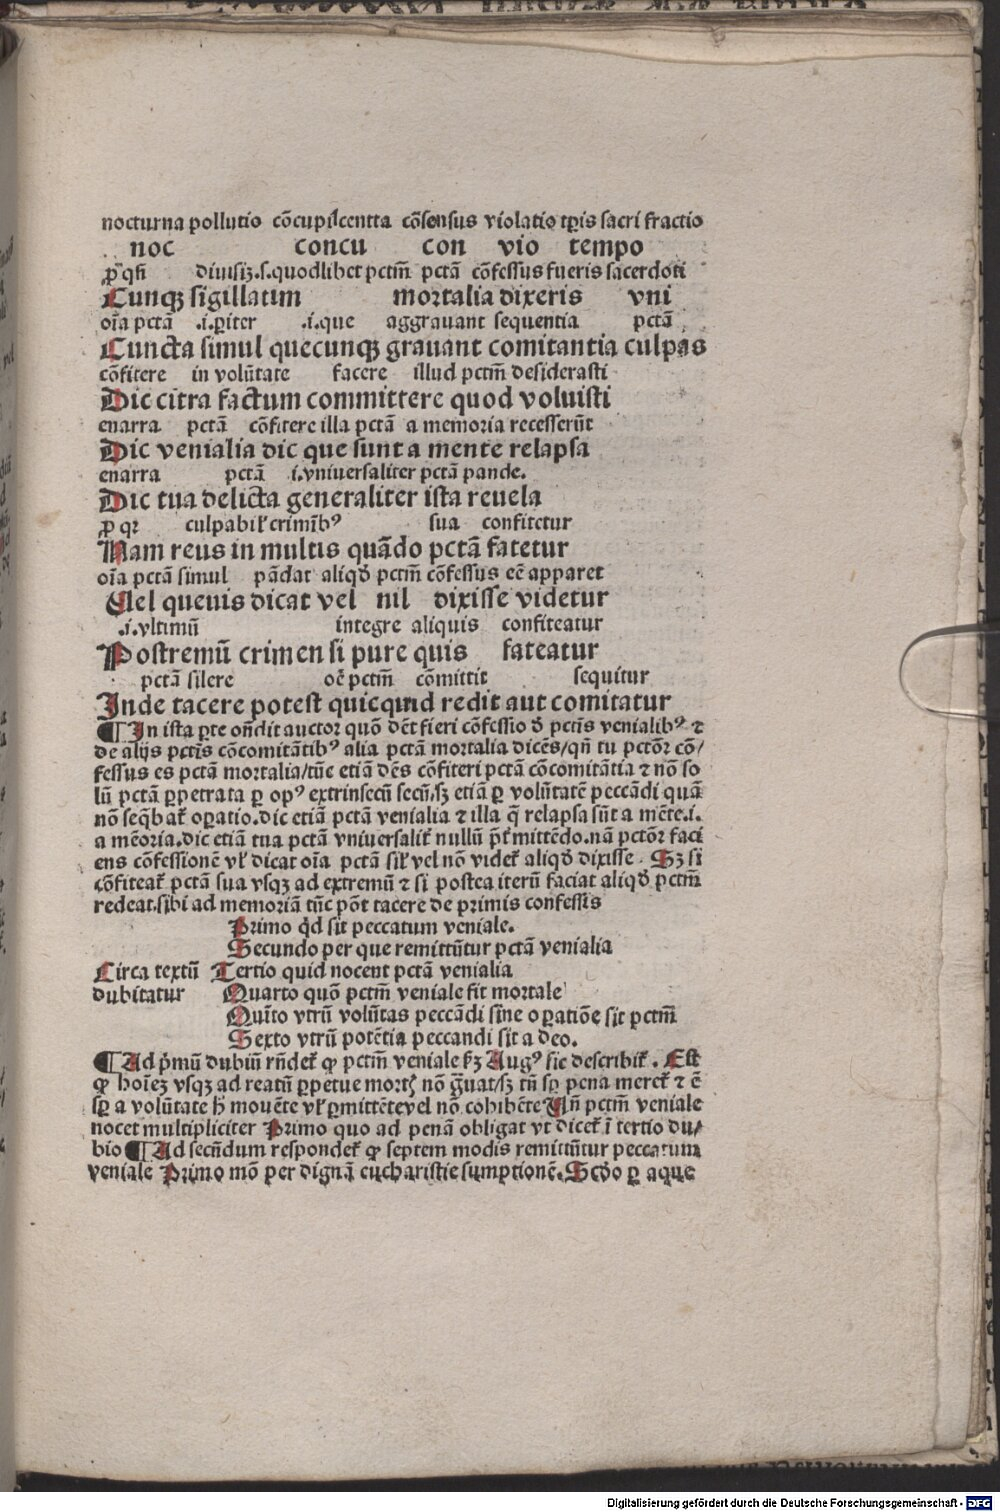 nocturna pollutio cōcupiscentta cōsensus violatio tp̄is sacri fractio
noc concu con vio tempo
ꝓ qn̄ diuisiꝫ.s.quodlibet pctm̄ pctā cōfessus fueris sacerdoti
Cunqꝫ sigillatim mortalia dixeris vni
oīa pctā .i.ꝑiter .i.que aggrauant sequentia pctā
Cuncta simul quecunqꝫ grauant comitantia culpas
cōfitere in volūtate facere illud pctm̄ desiderasti
Dic citra factum committere quod voluisti
enarra pctā cōfitere illa pctā a memoria recesserūt
Dic venialia dic que sunt a mente relapsa
enarra pctā i.vniuersaliter pctā pande.
Dic tua delicta generaliter ista reuela
ꝓ qꝛ culpabil̕ crimīb⁹ sua confitetur
Nam reus in multis quādo pctā fatetur
oīa pctā simul pādat aliqd̕ pctm̄ cōfessus eē apparet
Uel queuis dicat vel nil dixisse videtur
.i.vltimū integre aliquis confiteatur
Postremū crimen si pure quis fateatur
pctā silere oē pctm̄ cōmittit sequitur
Inde tacere potest quicquid redit aut comitatur
¶ In ista ꝑte on̄dit auctor quō dēt fieri cōfessio d̕ pctīs venialib⁹ ⁊
de alijs pctīs cōcomitātib⁹ alia pctā mortalia dicēs/qn̄ tu pctōꝛ cō/
fessus es pctā mortalia/tūc etiā dēs cōfiteri pctā cōcomitātia ⁊ nō so
lū pctā ꝑpetrata ꝑ op⁹ extrinsecū secū/sꝫ etiā ꝑ volūtatē peccādi quā
nō seq̄bat̕ oꝑatio.dic etiā pctā venialia ⁊ illa q̄ relapsa sūt a mēte.i.
a mēoria.dic etiā tua pctā vniuersalit̕ nullū p̄t̕mittēdo.nā pctōꝛ faci
ens cōfessionē vl̕ dicat oīa pctā sil̕ vel nō videt̕ aliqd̕ dixisse. Sꝫ si
cōfiteat̕ pctā sua vsqꝫ ad extremū ⁊ si postea iterū faciat aliqd̕ pctm̄
redeat.sibi ad memoriā tūc pōt tacere de primis confessis
Primo qd̕ sit peccatum veniale.
Secundo per que remittūtur pctā venialia
Circa textū Tertio quid nocent pctā venialia
dubitatur Quarto quō pctm̄ veniale fit mortale
Quīto vtrū volūtas peccādi sine oꝑatiōe sit pctm̄
Sexto vtrū potētia peccandi sit a deo.
¶ Ad p̄mū dubiū rn̄det̕ ꝙ pctm̄ veniale ẜm Aug⁹ sic describit̕. Est
ꝙ hoīeꝫ vsqꝫ ad reatū ꝑpetue mortꝭ nō g̈uat/sꝫ tn̄ sꝑ pena meret̕ ⁊ ē
sꝑ a volūtate h̄ mouēte vl̕ ꝑmittēte vel nō cohibēte Un̄ pctm̄ veniale
nocet multipliciter Primo quo ad penā obligat vt dicet̕ ī tertio du/
bio ¶ Ad secūdum respondet̕ ꝙ septem modis remittūtur peccatum
veniale Primo mō per dignā eucharistie sumptionē. Scdo ꝑ aque
Digitalisierung gefördert durch die Deutsche Forschungsgemeinschaft - DFG